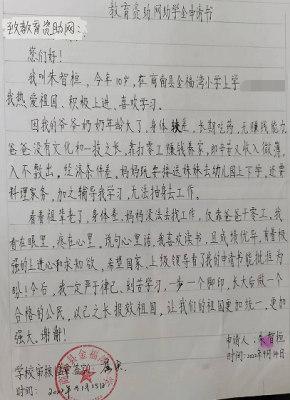 教育资助网助学金申请书
致教育资助网:
您们好!
我叫朱智桓,今年10岁,在商南县金福湾小学上学
我热爱祖国、积极上进、喜欢学习。
因我的爷爷奶奶年龄大了,身体较差,长期吃药,无赚钱能力
爸爸没有文化和一技之长,靠打零工赚钱养家,却辛苦又收入微薄,
入不敷出,经济条件差,妈妈既要接送妹妹去幼儿园上下学,还要
料理家务,加之辅导我学习,无法抽身去工作。
看着祖辈老了,身体差,妈妈没法去找工作,仅靠爸爸干零工,我
看在眼里,疼在心里,说句心里话,我喜欢读书,且成绩优异,有着极
强的上进心和求知欲,希望国家、上级领导看了我的申请书能批准为
盼!今后,我一定严于律己,刻苦学习,一步一个脚印,长大后做一个
合格的公民,以己之长报效祖国,让我们的祖国更加统一,更加
强大。谢谢!
申请人:朱智桓
学校审核
时间: